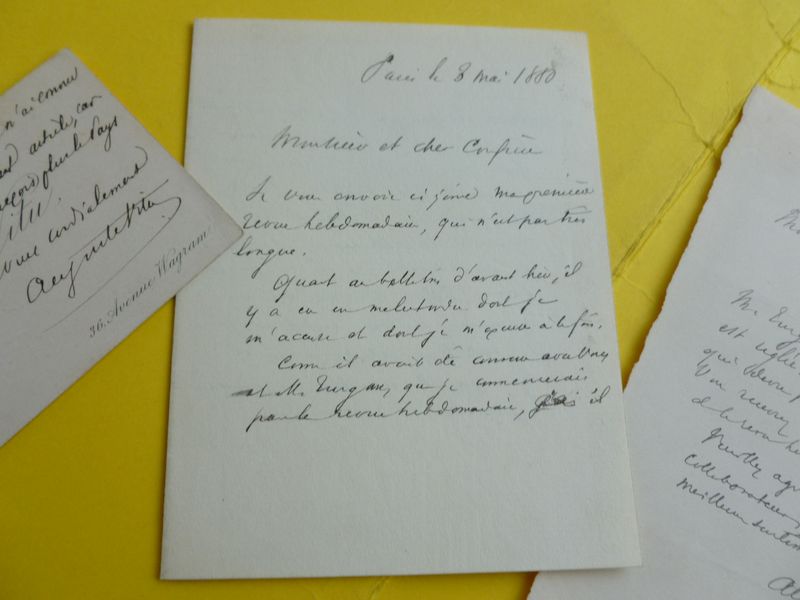 n'ai connu
article, car
reçois plus le Pays
cordialement
36, Avenue Wagram
Paris le 8 mai 1880
Monsieur et cher Confrère
Je vous envoie ci joint ma première
revue hebdomadaire, qui n'est pas très
longue.
Quant au bulletin d'avant hier, il
y a eu un malentendu dont je
m'accuse et dont je m'excuse à la fois.
Comme il avait été convenu avec vous
et Mr Turgan, que je commencerais
par la revue hebdomadaire, il
Mr Turg
est
qui
Vous recevez
Veuillez agr
collaborateur
meilleurs sentim